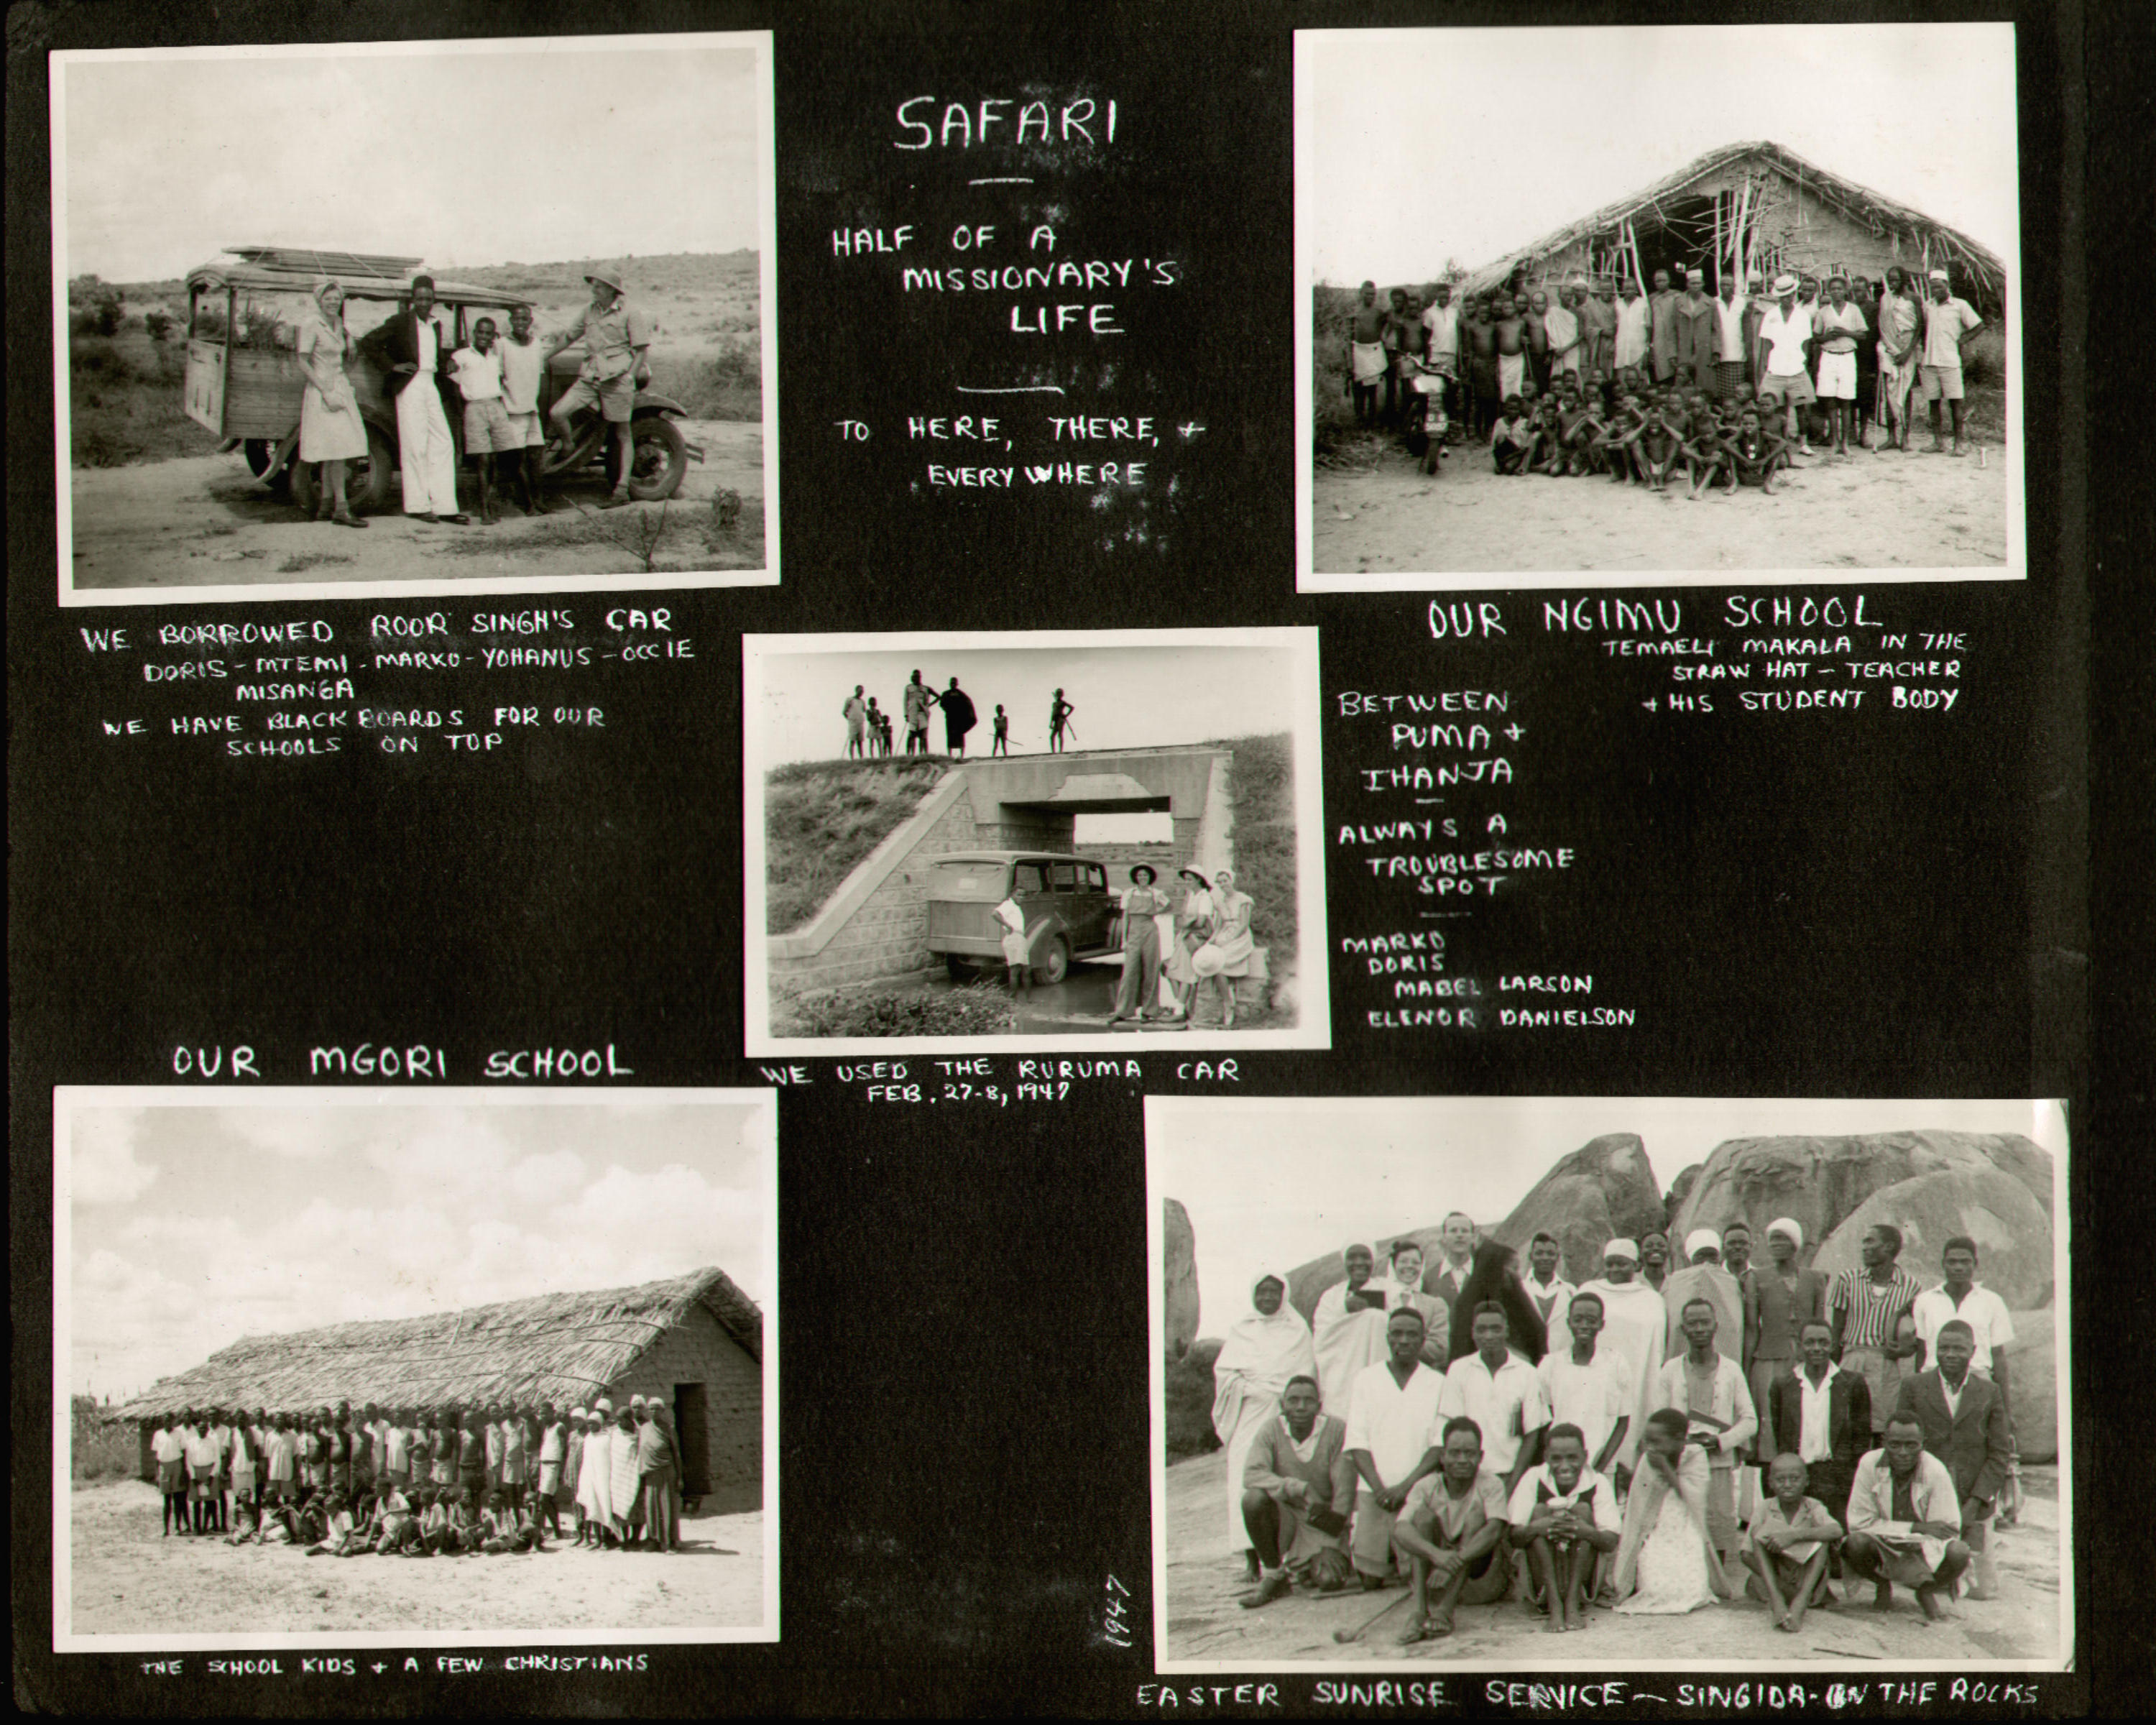 SAFARI
HALF OF A
MISSIONARY'S
LIFE
TO HERE, THERE, +
EVERYWHERE
WE BORROWED ROOR SINGH'S CAR
DORIS - MTEMI - MARKO - YOHANUS - OCCIE
MISANGA
WE HAVE BLACK BOARDS FOR OUR
SCHOOLS ON TOP
OUR NGIMU SCHOOL
TEMAELI MAKALA IN THE
STRAW HAT - TEACHER
+ HIS STUDENT BODY
BETWEEN
PUMA +
IHANJA
ALWAYS A
TROUBLESOME
SPOT
MARKO
DORIS
MABEL LARSON
ELENOR DANIELSON
WE USED THE RURUMA CAR
FEB. 27-8, 1947
OUR MGORI SCHOOL
THE SCHOOL KIDS + A FEW CHRISTIANS
1947
EASTER SUNRISE SERVICE - SINGIDA - ON THE ROCKS